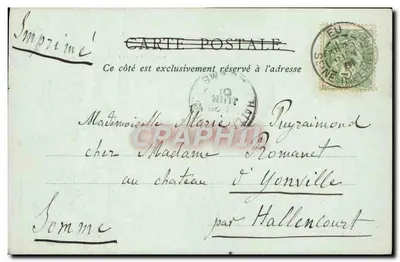 Imprimé
CARTE POSTALE
Ce côté est exclusivement réservé à l'adresse
EU
SEINE
JUIN
01
Mademoiselle Marie Puyraimond
cher Madame Romanet
au chateau d'Yonville
Somme par Hallencourt